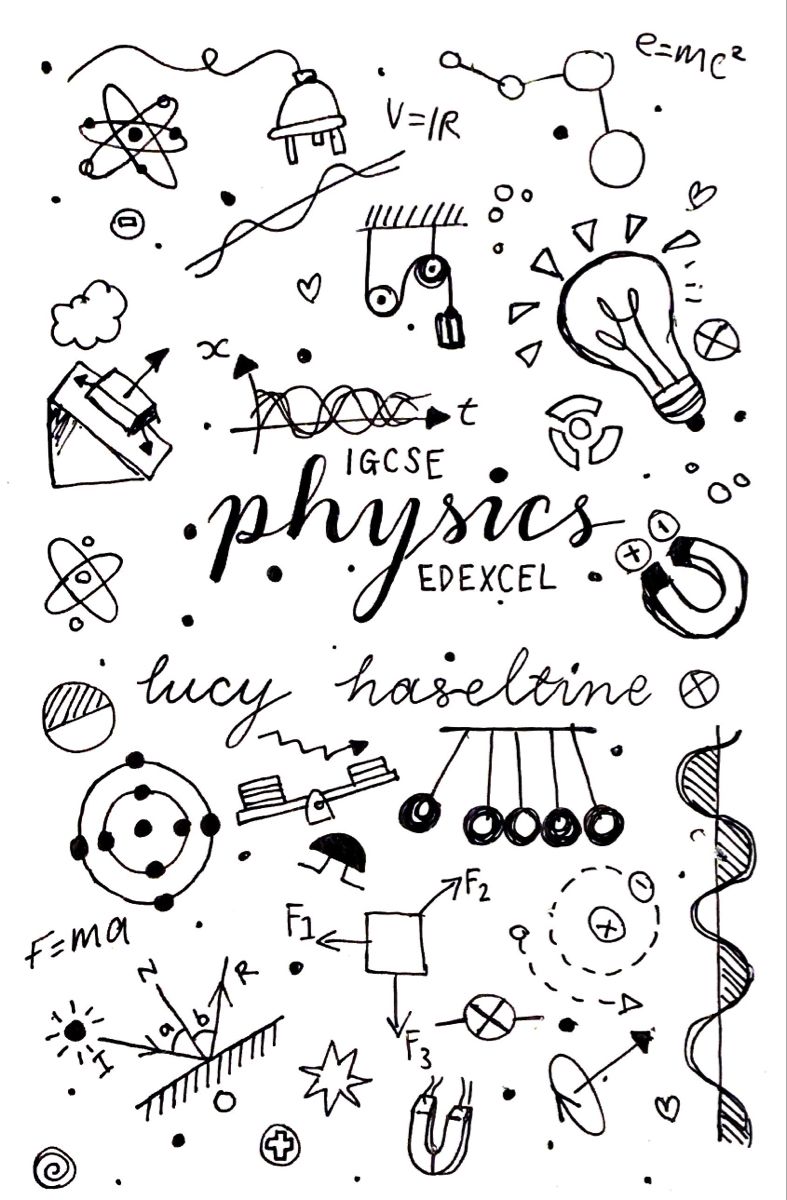 e=mc²
V=IR
x
t
IGCSE
physics
EDEXCEL
lucy haseltine
F1
F2
F3
F=ma
N
R
a
b
I